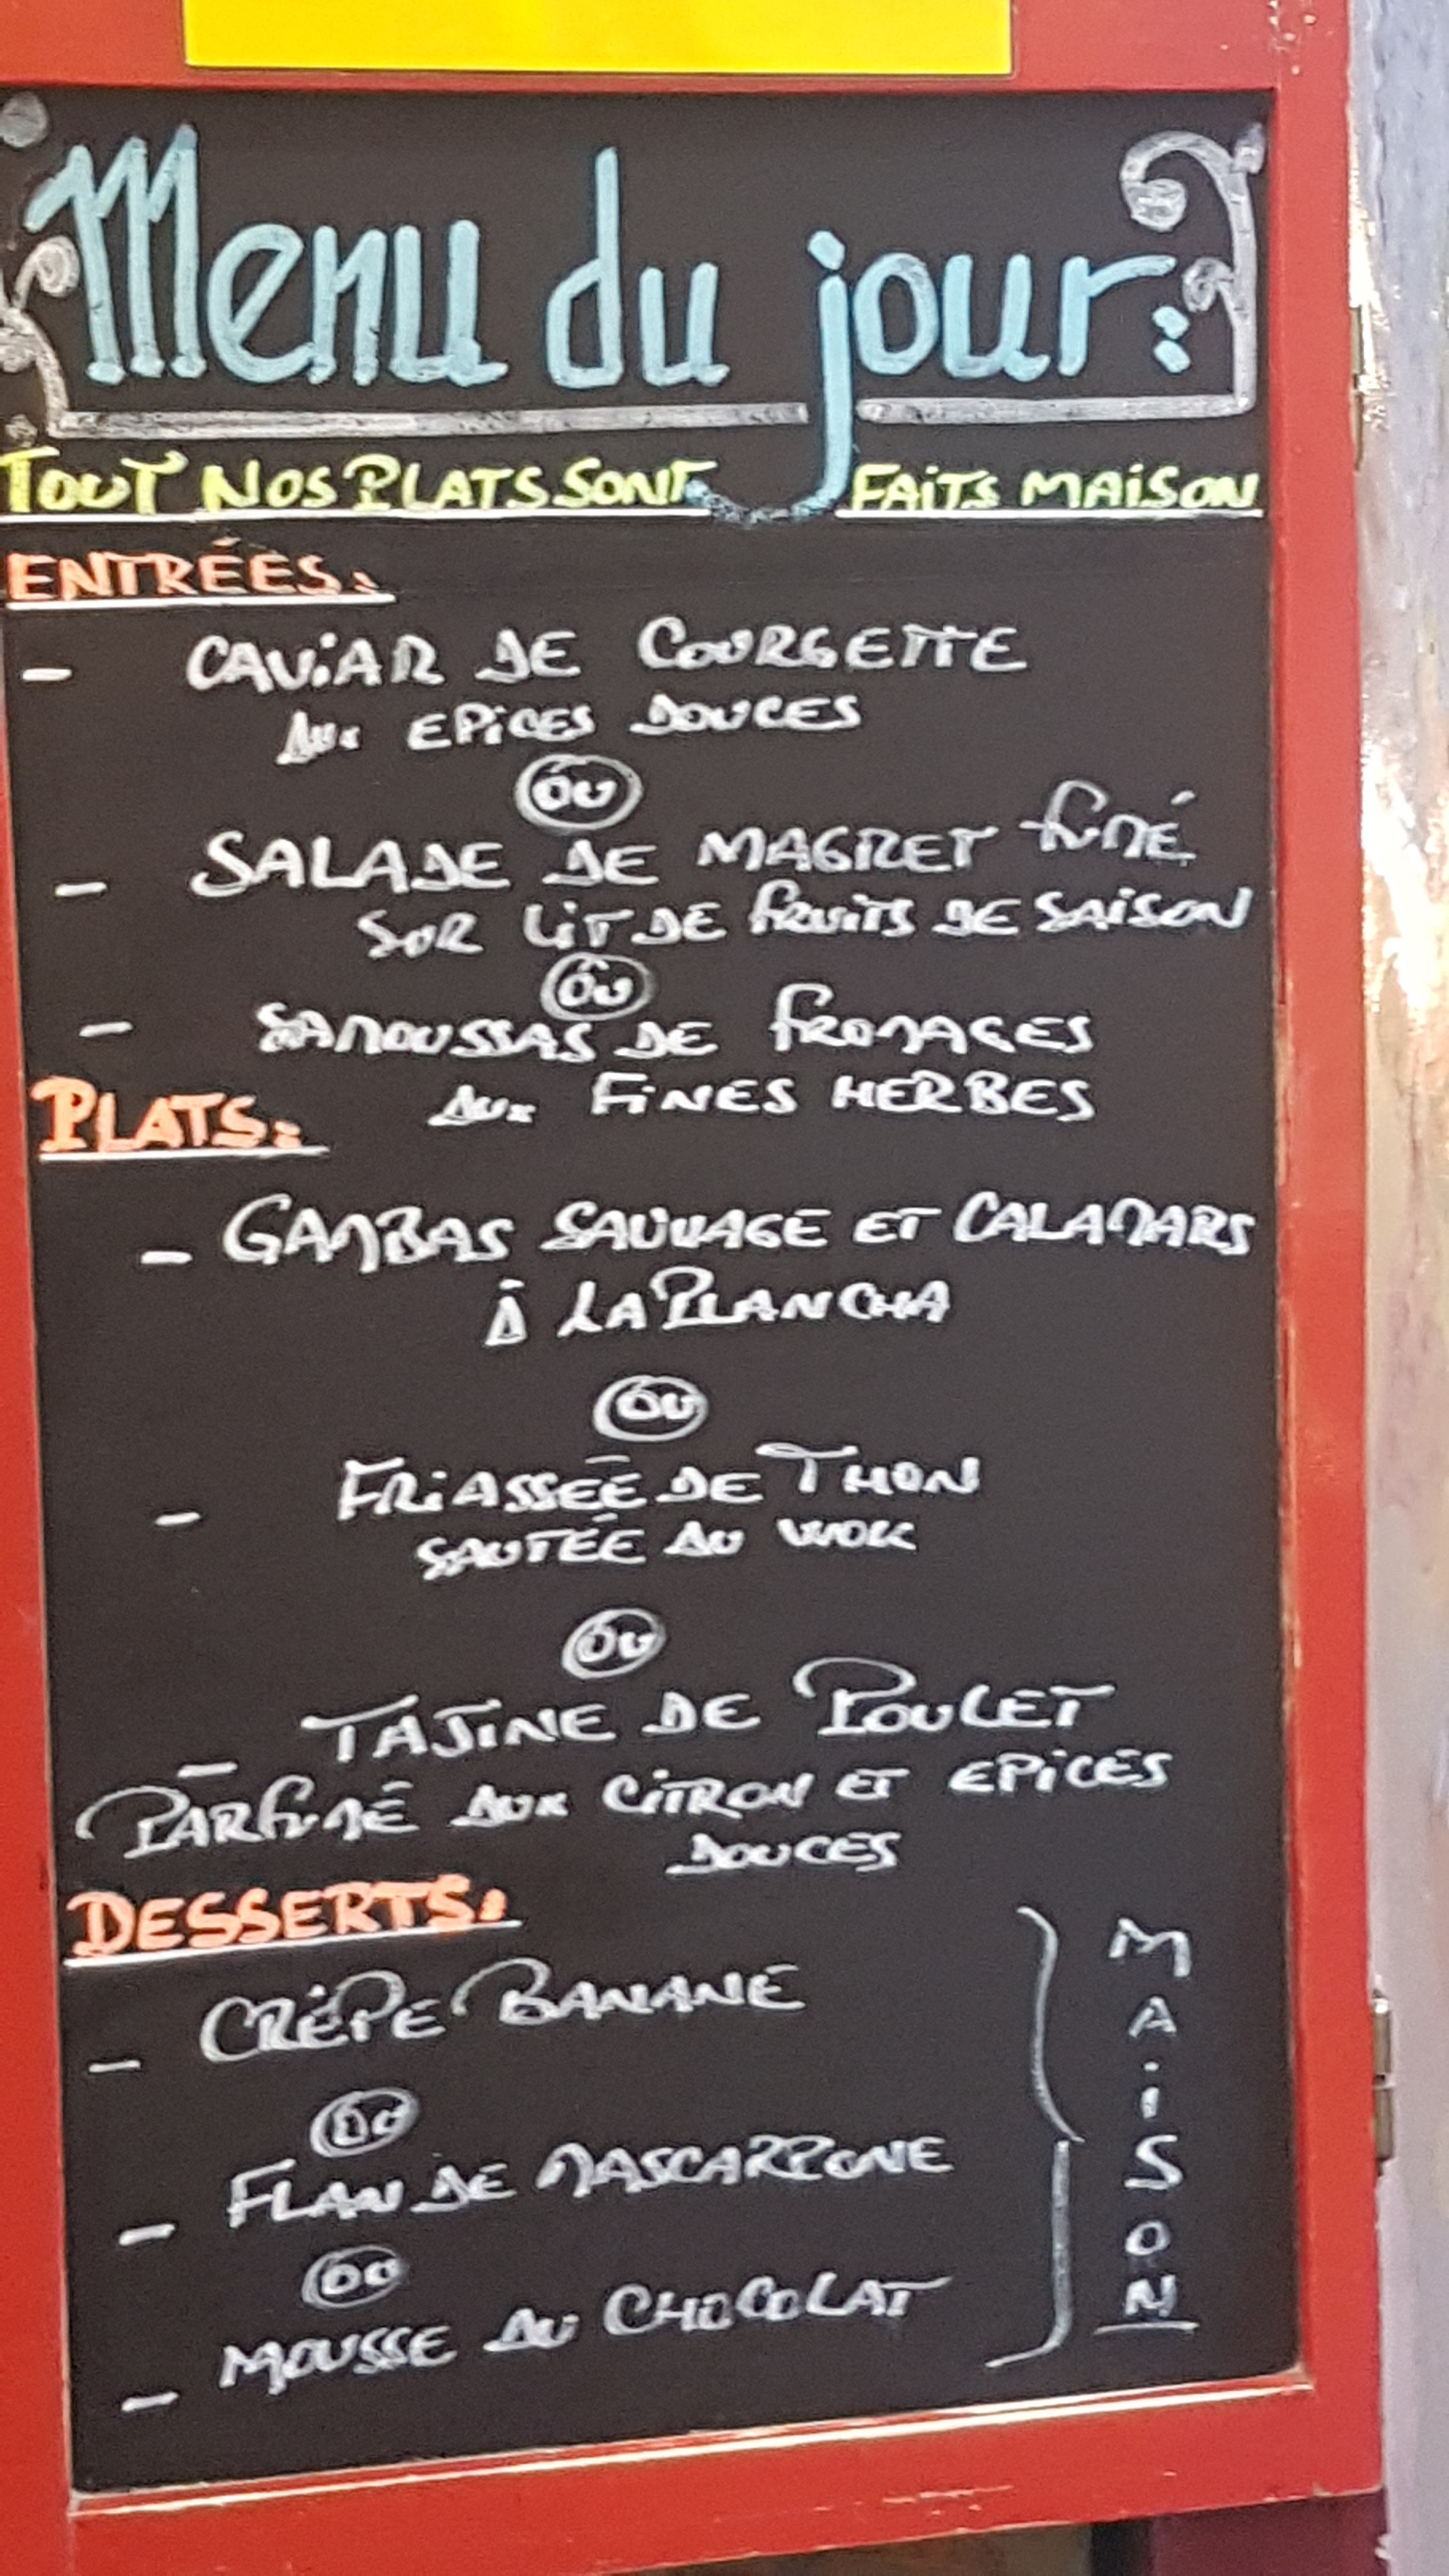 Menu du jour:
TOUT NOS PLATS SONT FAITS MAISON
ENTRÉES:
- CAVIAR DE COURGETTE
AUX EPICES DOUCES
OU
- SALADE DE MAGRET FUMÉ
SUR LIT DE FRUITS DE SAISON
OU
- SAMOUSSAS DE FROMAGES
AUX FINES HERBES
PLATS:
- GAMBAS SAUVAGE ET CALAMARS
À LA PLANCHA
OU
- FRIASSEÉ DE THON
SAUTÉE AU WOK
OU
- TAJINE DE POULET
PARFUMÉ AUX CITRON ET EPICES
DOUCES
DESSERTS:
- CRÊPE BANANE
OU
- FLAN DE MASCARPONE
OU
- MOUSSE AU CHOCOLAT
MAISON